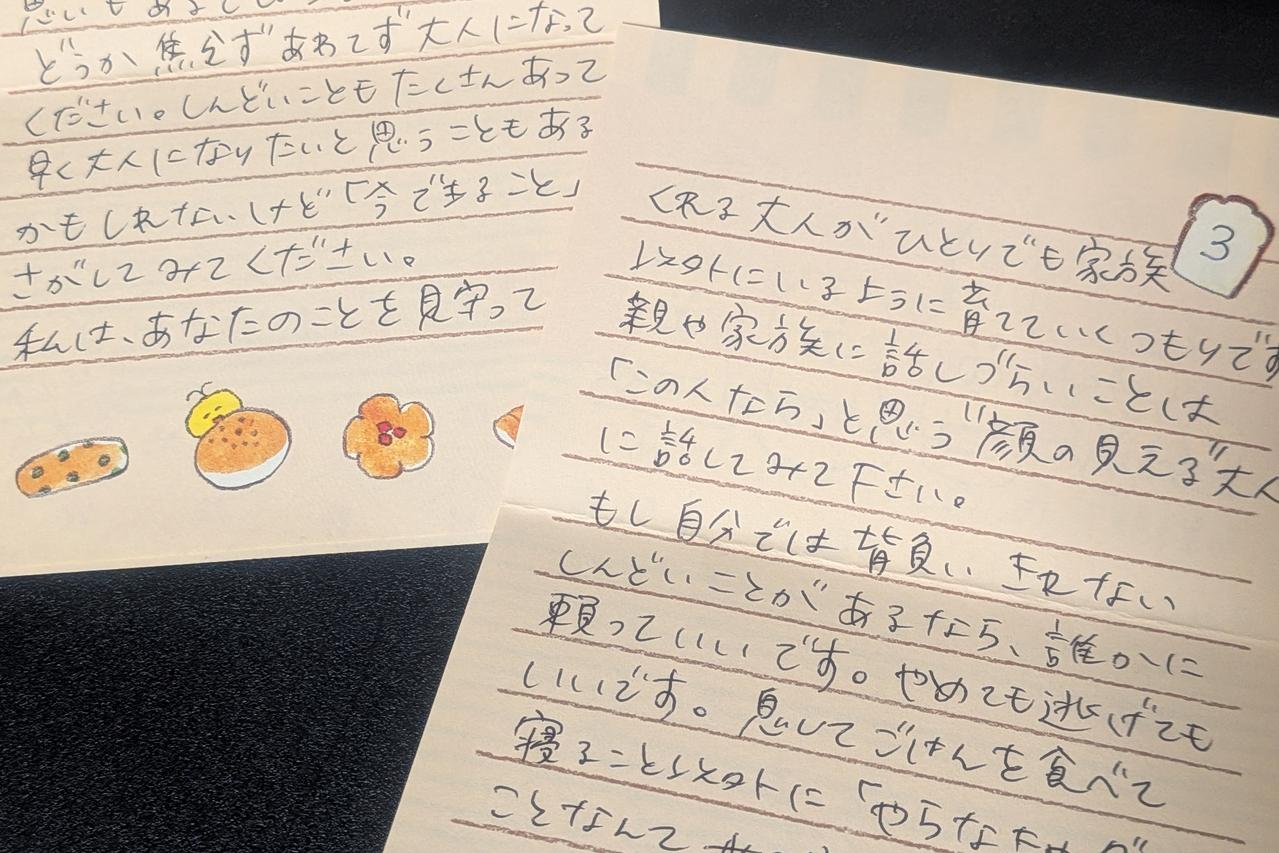 どうか焦らずあわてず大人になって
ください。しんどいこともたくさんあって
早く大人になりたいと思うこともある
かもしれないけど「今できること」
さがしてみてください。
私は、あなたのことを見守って
3
くれる大人がひとりでも家族
以外にいるように育てていくつもりです
親や家族に話しづらいことは
「この人なら」と思う"顔の見える"大人
に話してみて下さい。
もし自分では背負いきれない
しんどいことがあるなら、誰かに
頼っていいです。やめても逃げても
いいです。息してごはんを食べて
寝ること以外に「やらなきゃ
ことなんて